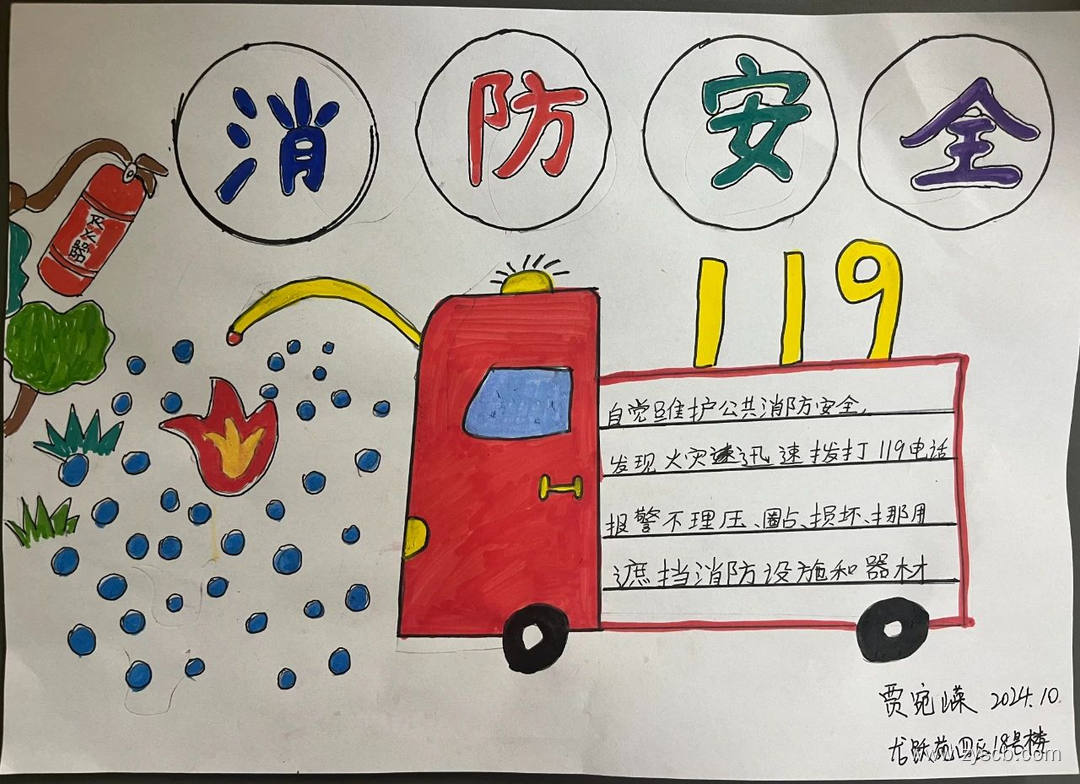 消防安全
灭火器
119
自觉维护公共消防安全,
发现火灾迅速拨打119电话
报警不埋压、圈占、损坏、挪用
遮挡消防设施和器材
贾宛嵘 2024.10.
龙跃苑四区18号楼
www.zyscb.com